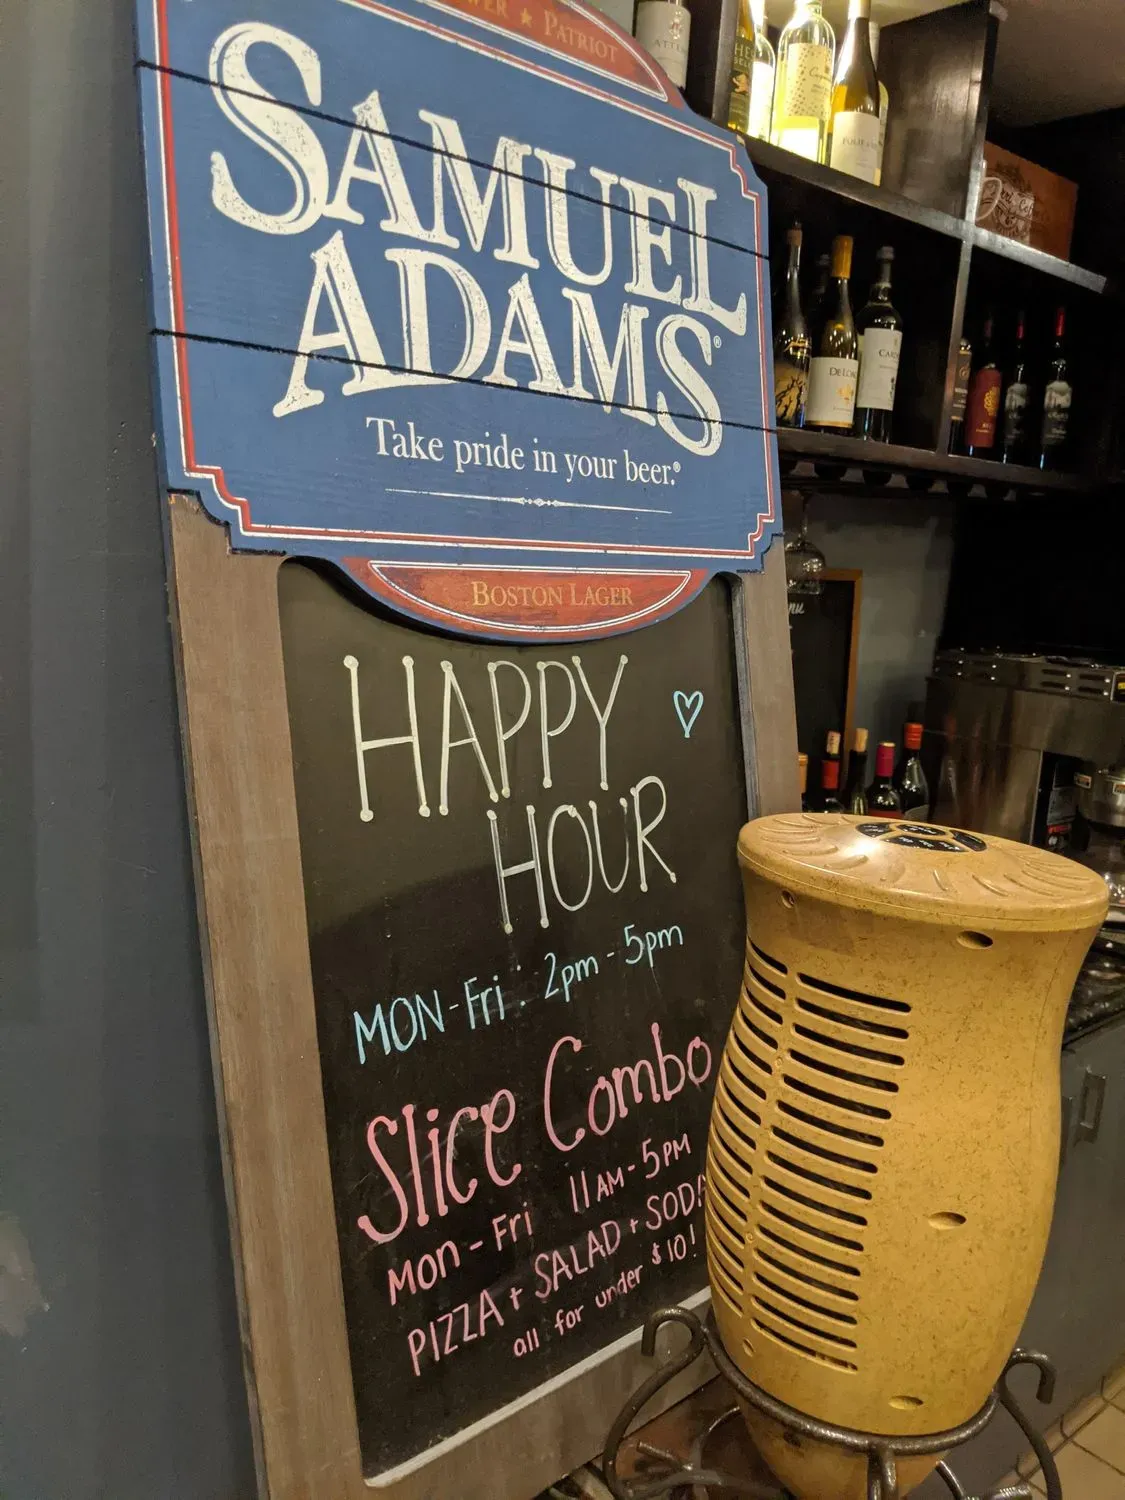 PATRIOT
SAMUEL
ADAMS®
Take pride in your beer.®
BOSTON LAGER
HAPPY
HOUR
MON-Fri: 2pm-5pm
Slice Combo
Mon-Fri 11AM-5PM
PIZZA + SALAD + SODA
all for under $10!